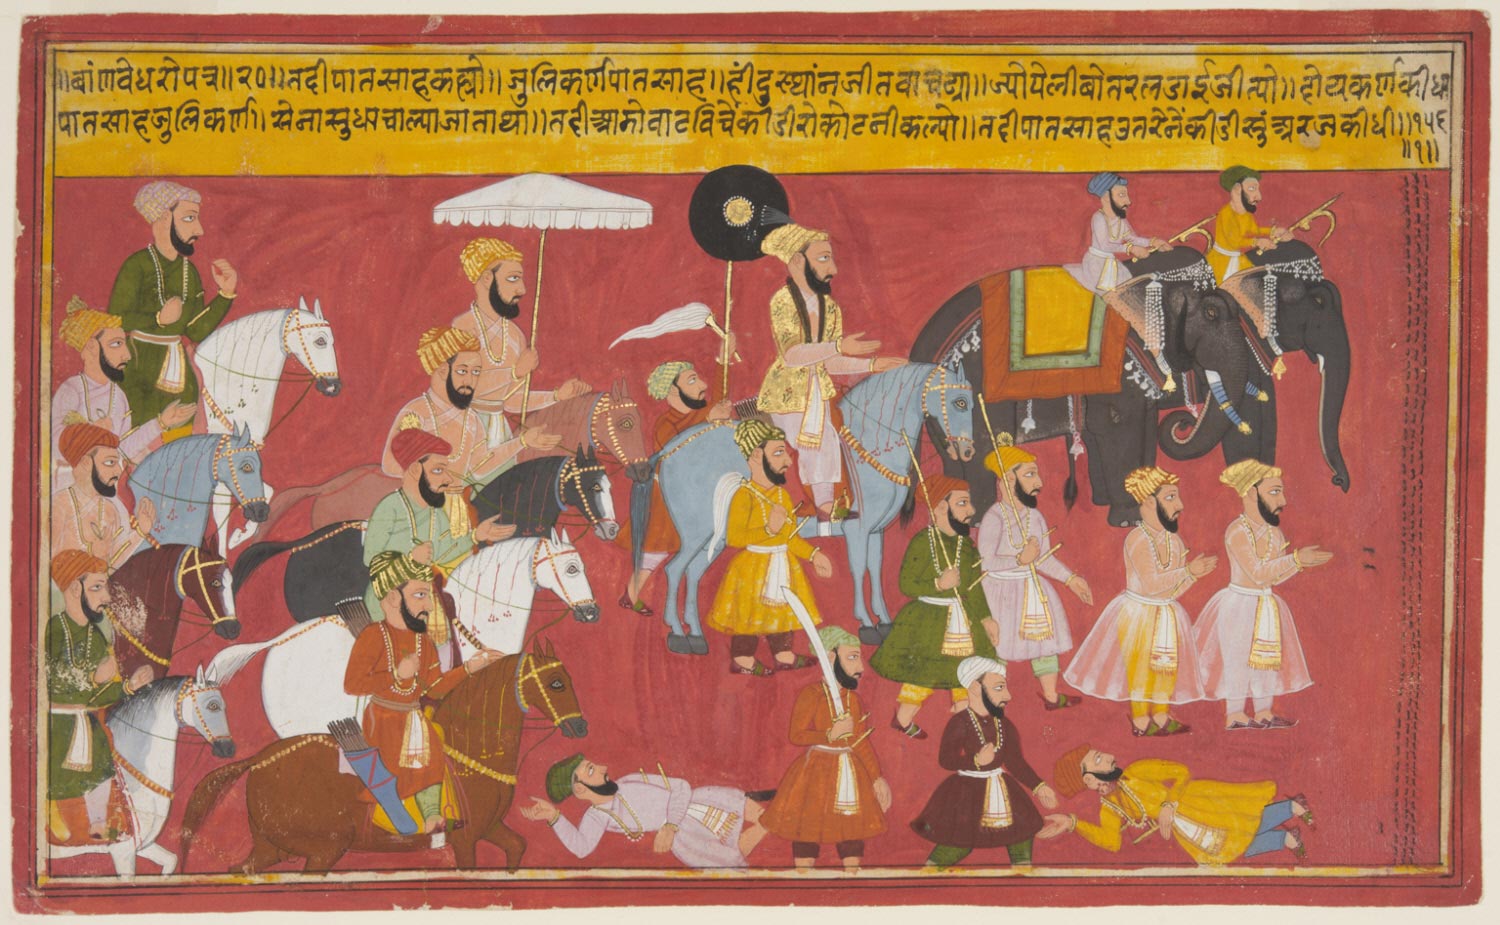 ॥बांणवेधरोपत्र॥२०॥तदीपातसाहकह्यो॥जुलिकर्णपातसाह॥हींदुस्थांनजीतवाचढ्या॥ज्योपेलीबोतरलडाईजीत्यो॥
पातसाहजुलिकर्ण।सेनासुधाचाल्याजाताथा॥तदीआगेवाटविचेंकीडीरोकोटनीकल्यो॥तदीपातसाहउतरेनेंकीडीसुंअरजकीधी॥१५६
॥१॥